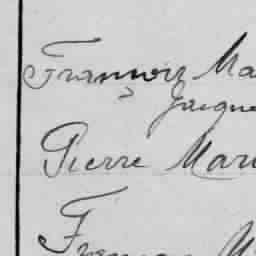 François Ma
Jacque
Pierre Mari
Fran